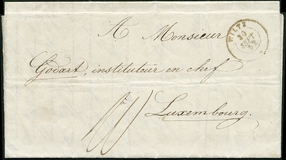 A Monsieur
Godart, instituteur en chef
Luxembourg.
WILTZ